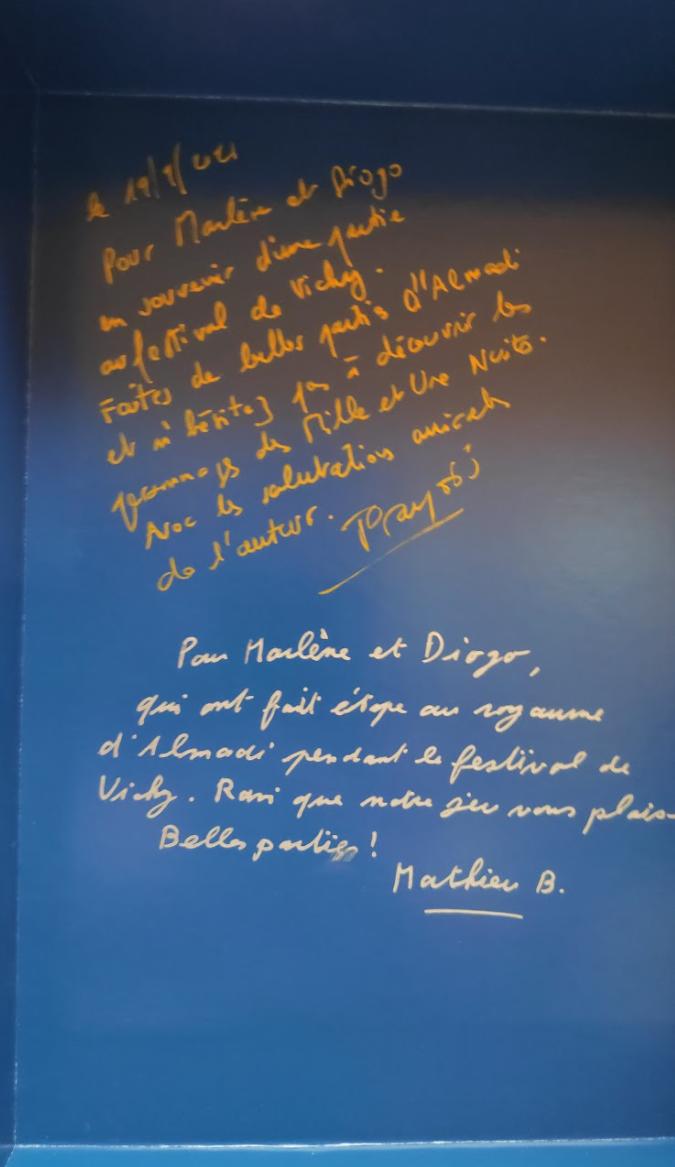 le 19/9/2021
Pour Marlène et Diogo
en souvenir d'une partie
au festival de Vichy.
Faites de belles parties d'"Almadi
et n'hésitez pas à découvrir les
personnages des Mille et Une Nuits.
Avec les salutations amicales
de l'auteur.
Pour Marlène et Diogo,
qui ont fait étape au royaume
d'Almadi pendant le festival de
Vichy. Ravi que notre jeu vous plais
Belles parties !
Mathieu B.